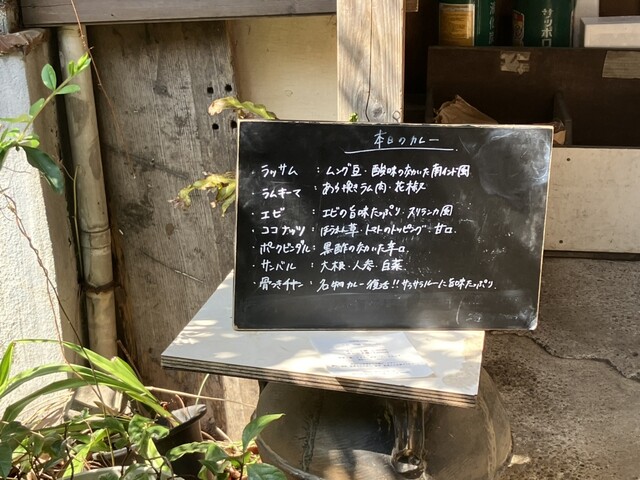 サッポロ
本日のカレー
・ラッサム : ムング豆・酸味の効いた南インド風
・ラムキーマ : あら挽きラム肉・花椒
・エビ : エビの旨味たっぷり スリランカ風
・ココナッツ : ほうれん草・トマトのトッピング・甘口
・ポークビンダル : 黒酢の効いた辛口
・サンバル : 大根・人参・白菜
・骨つきチキン : 名物カレー復活!! サラサラルーに旨味たっぷり